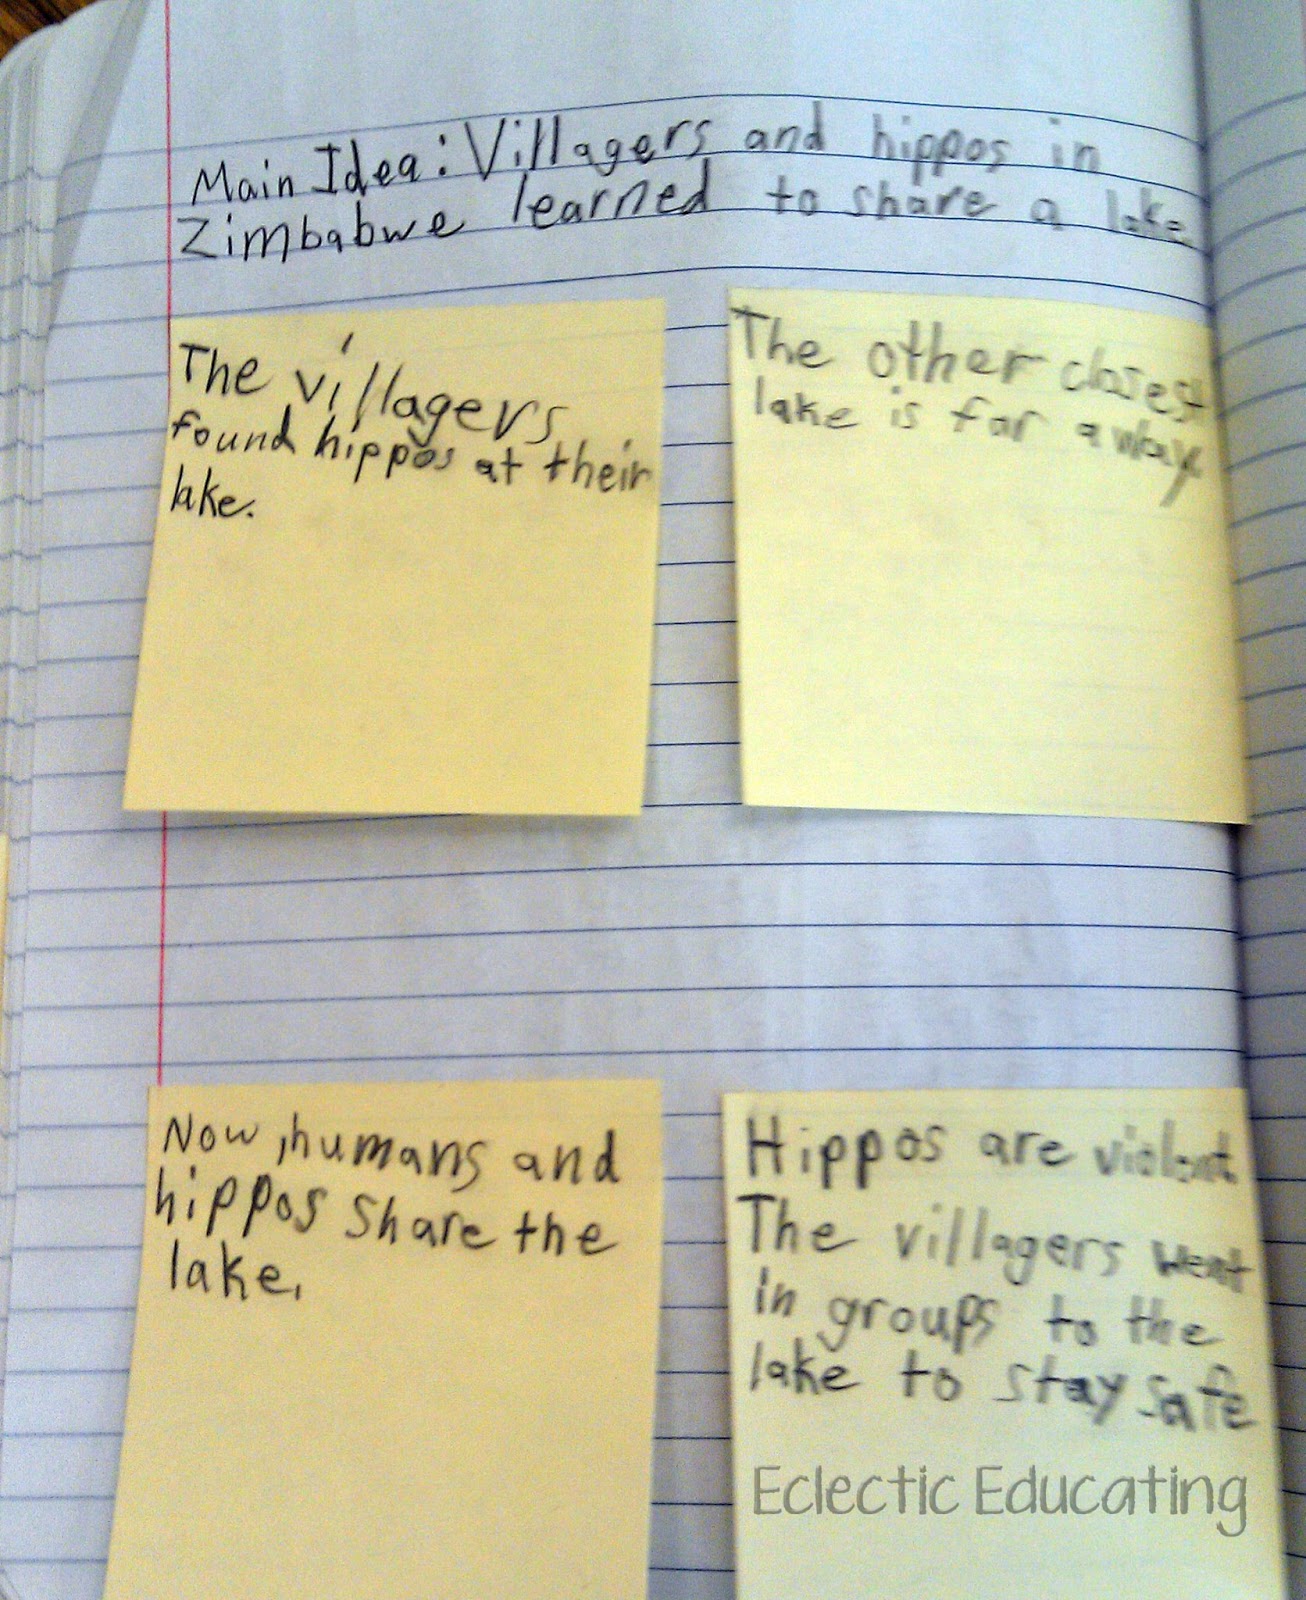 Main Idea: Villagers and hippos in
Zimbabwe learned to share a lake.
The villagers
found hippos at their
lake.
The other closest
lake is far away.
Now, humans and
hippos share the
lake.
Hippos are violent.
The villagers went
in groups to the
lake to stay safe
Eclectic Educating